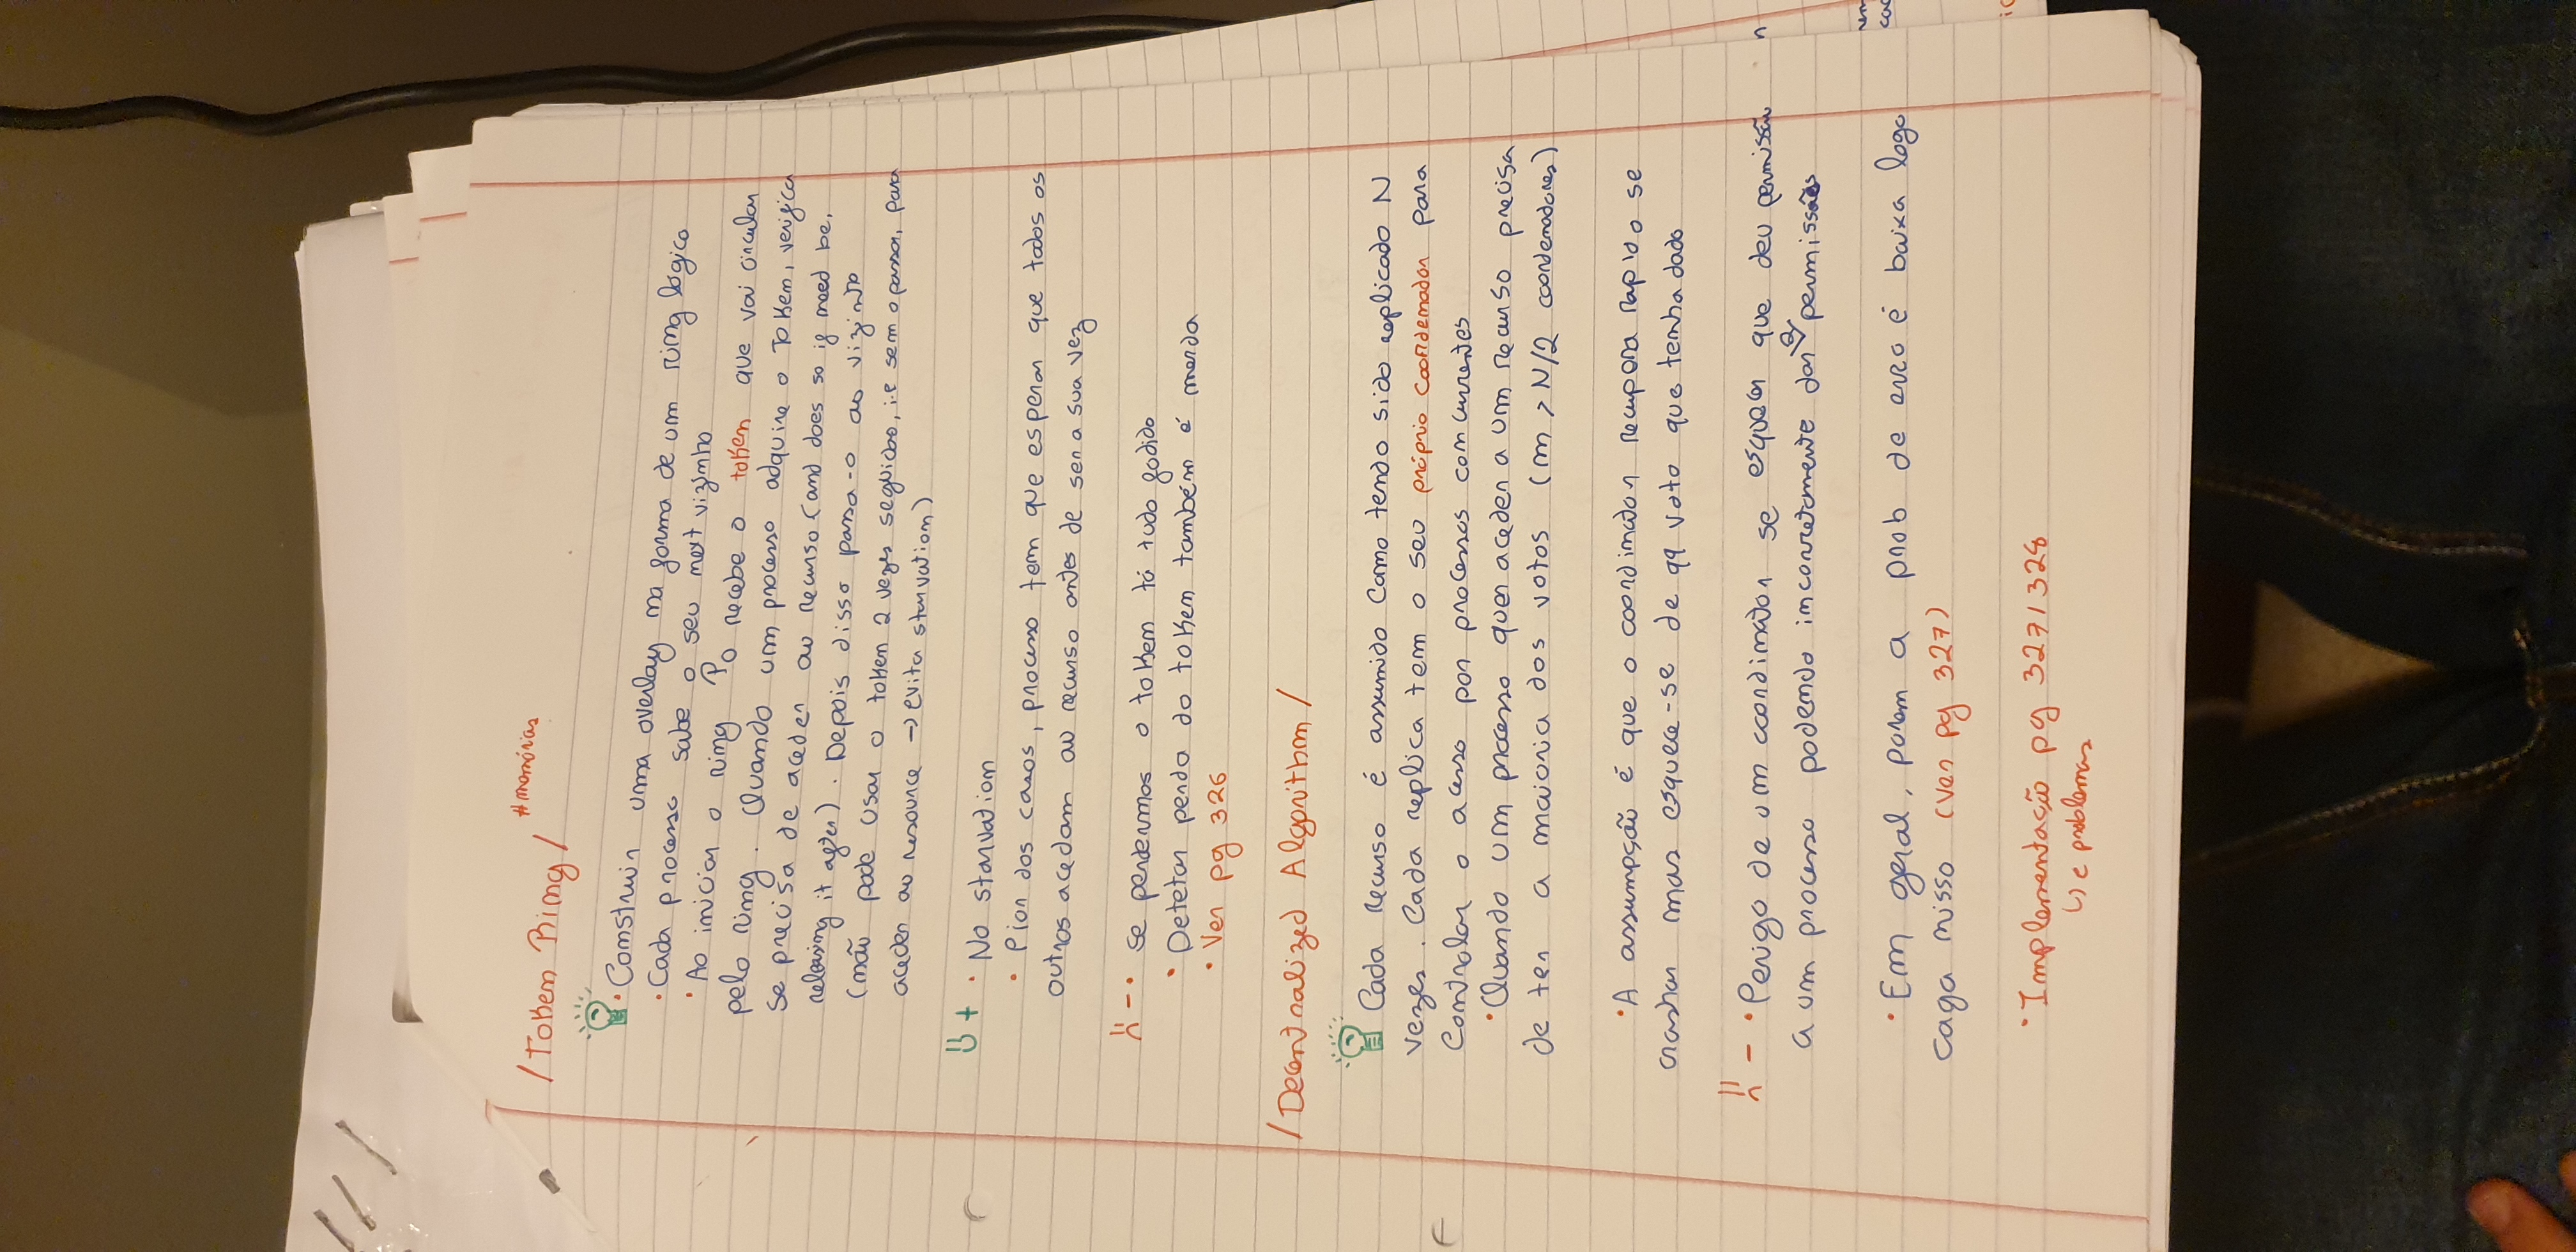 /Token Ring/ #memórias
• Construir uma overlay na forma de um ring lógico
• Cada processo sabe o seu next vizinho
• Ao iniciar o ring P0 recebe o token que vai circular
pelo ring. Quando um processo adquire o token, verifica
se precisa de aceder ao recurso (and does so if need be,
releasing it after). Depois disso passa-o ao vizinho
(não pode usar o token 2 vezes seguidas, i.e sem o passar, para
aceder ao resource → evita starvation)
+ • No starvation
• Pior dos casos, processo tem que esperar que todos os
outros acedam ao recurso antes de ser a sua vez
- • se perdermos o token tá tudo fodido
• Detetar perda do token também é merda
• Ver pg 326
/Decentralized Algorithm/
Cada recurso é assumido como tendo sido replicado N
vezes. Cada replica tem o seu próprio coordenador para
controlar o acesso por processos concurrentes
• Quando um processo quer aceder a um recurso precisa
de ter a maioria dos votos (m > N/2 coordenadores)
• A assumpção é que o coordinator recupera rapido se
crashar mas esquece-se de qq voto que tenha dado
- • Perigo de um coordinator se esquecer que deu permissão
a um processo podendo incorretamente dar 2 permissões
• Em geral, porem a prob de erro é baixa logo
caga nisso (ver pg 327)
• Implementação pg 327/328
↳ e problemas